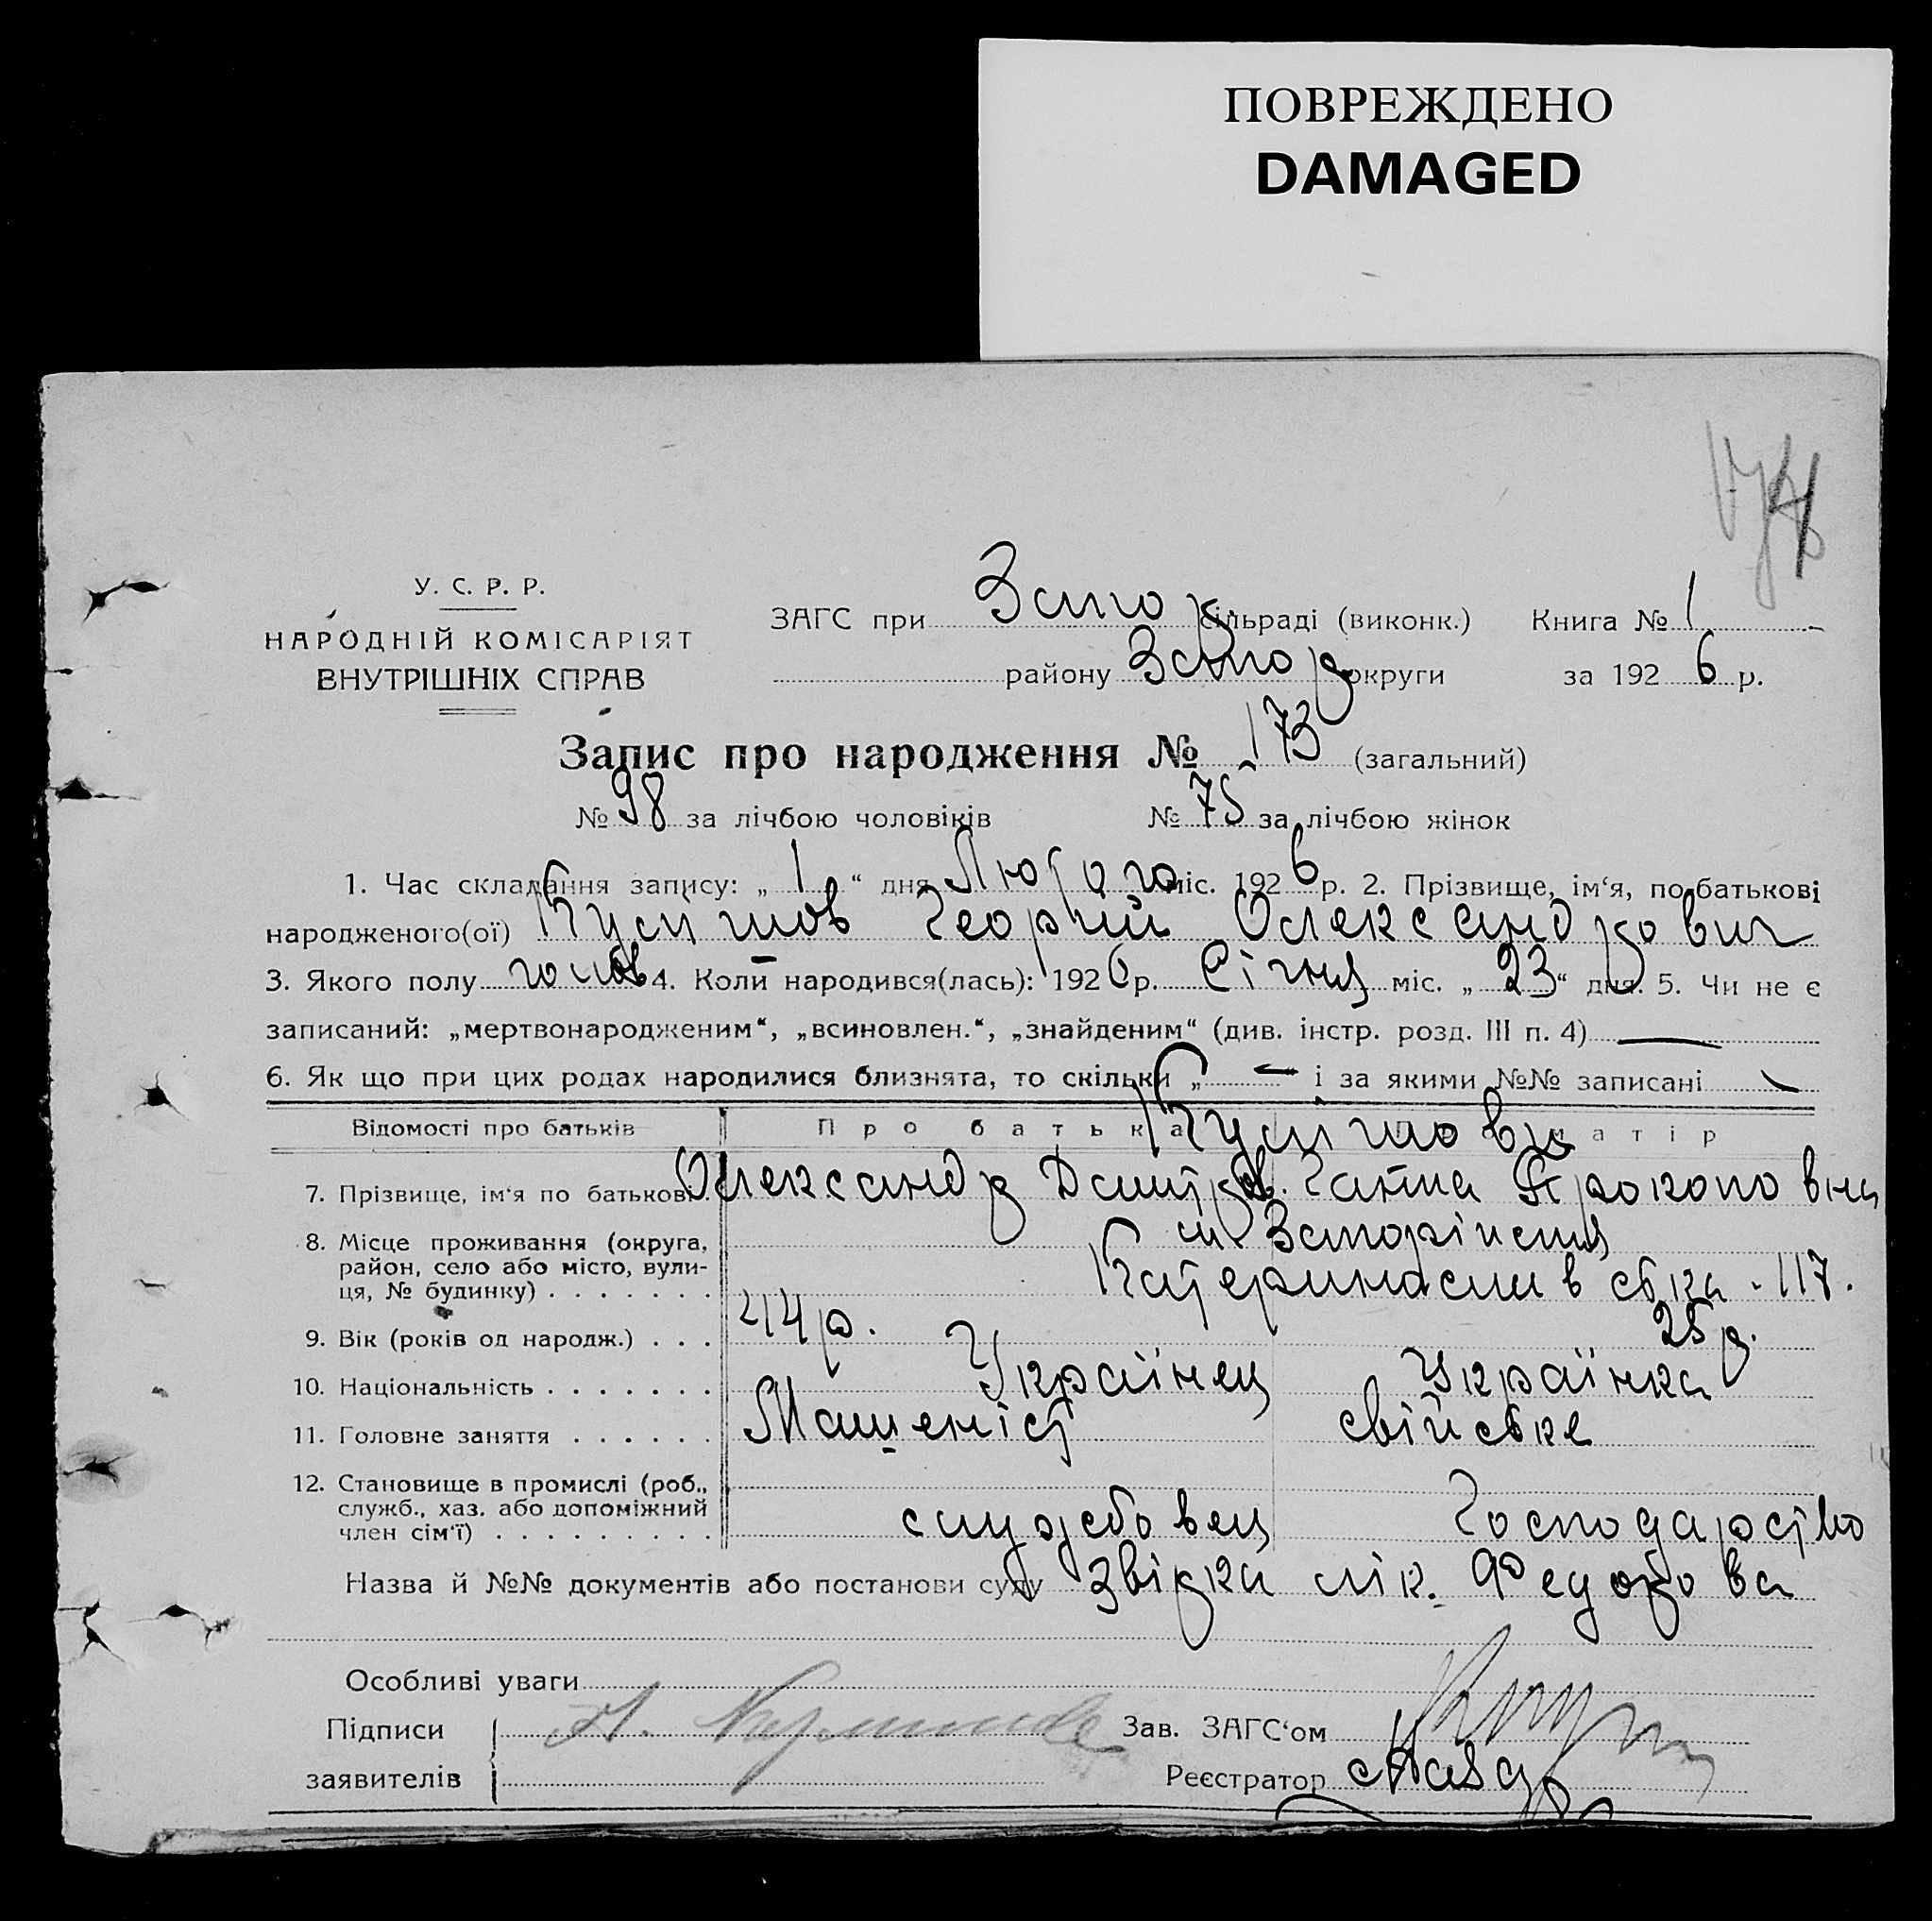 ПОВРЕЖДЕНО
DAMAGED
У. С. Р. Р.
НАРОДНІЙ КОМІСАРІЯТ
ВНУТРІШНІХ СПРАВ
ЗАГС при Запор сільраді (виконк.) Книга № 1
району Запор округи за 1926 р.
Запис про народження № 173 (загальний)
№ 98 за лічбою чоловіків № 75 за лічбою жінок
1. Час складання запису: „ 1 “ дня Лютого міс. 1926 р. 2. Прізвище, ім‘я, по батькові
народженого(ої) Георгій Олександрович
3. Якого полу чолов 4. Коли народився(лась): 1926 р. Січня міс. „ 23 “ дня. 5. Чи не є
записаний: „мертвонародженим“, „всиновлен.“, „знайденим“ (див. інстр. розд. III п. 4)
6. Як що при цих родах народилися близнята, то скільки „ — і за якими №№ записані
Відомості про батьків Про батька Про матір
7. Прізвище, ім‘я по батькові. Олександр Дмитров. Ганна Прокоповна
8. Місце проживання (округа, м. Запоріжжя
район, село або місто, вули-
ця, № будинку) . . . . . . . Катеринославська - 117.
9. Вік (років од народж.) . . . 44 р. 25 р.
10. Національність . . . . . . . Українец Українка
11. Головне заняття . . . . . . Машеніст свійське
12. Становище в промислі (роб.,
служб., хаз. або допоміжний
член сім‘ї) . . . . . . . . . службовец Господарство
Назва й №№ документів або постанови суду Звідка лік. Федорова
Особливі уваги
Підписи Зав. ЗАГС‘ом
заявителів Реєстратор